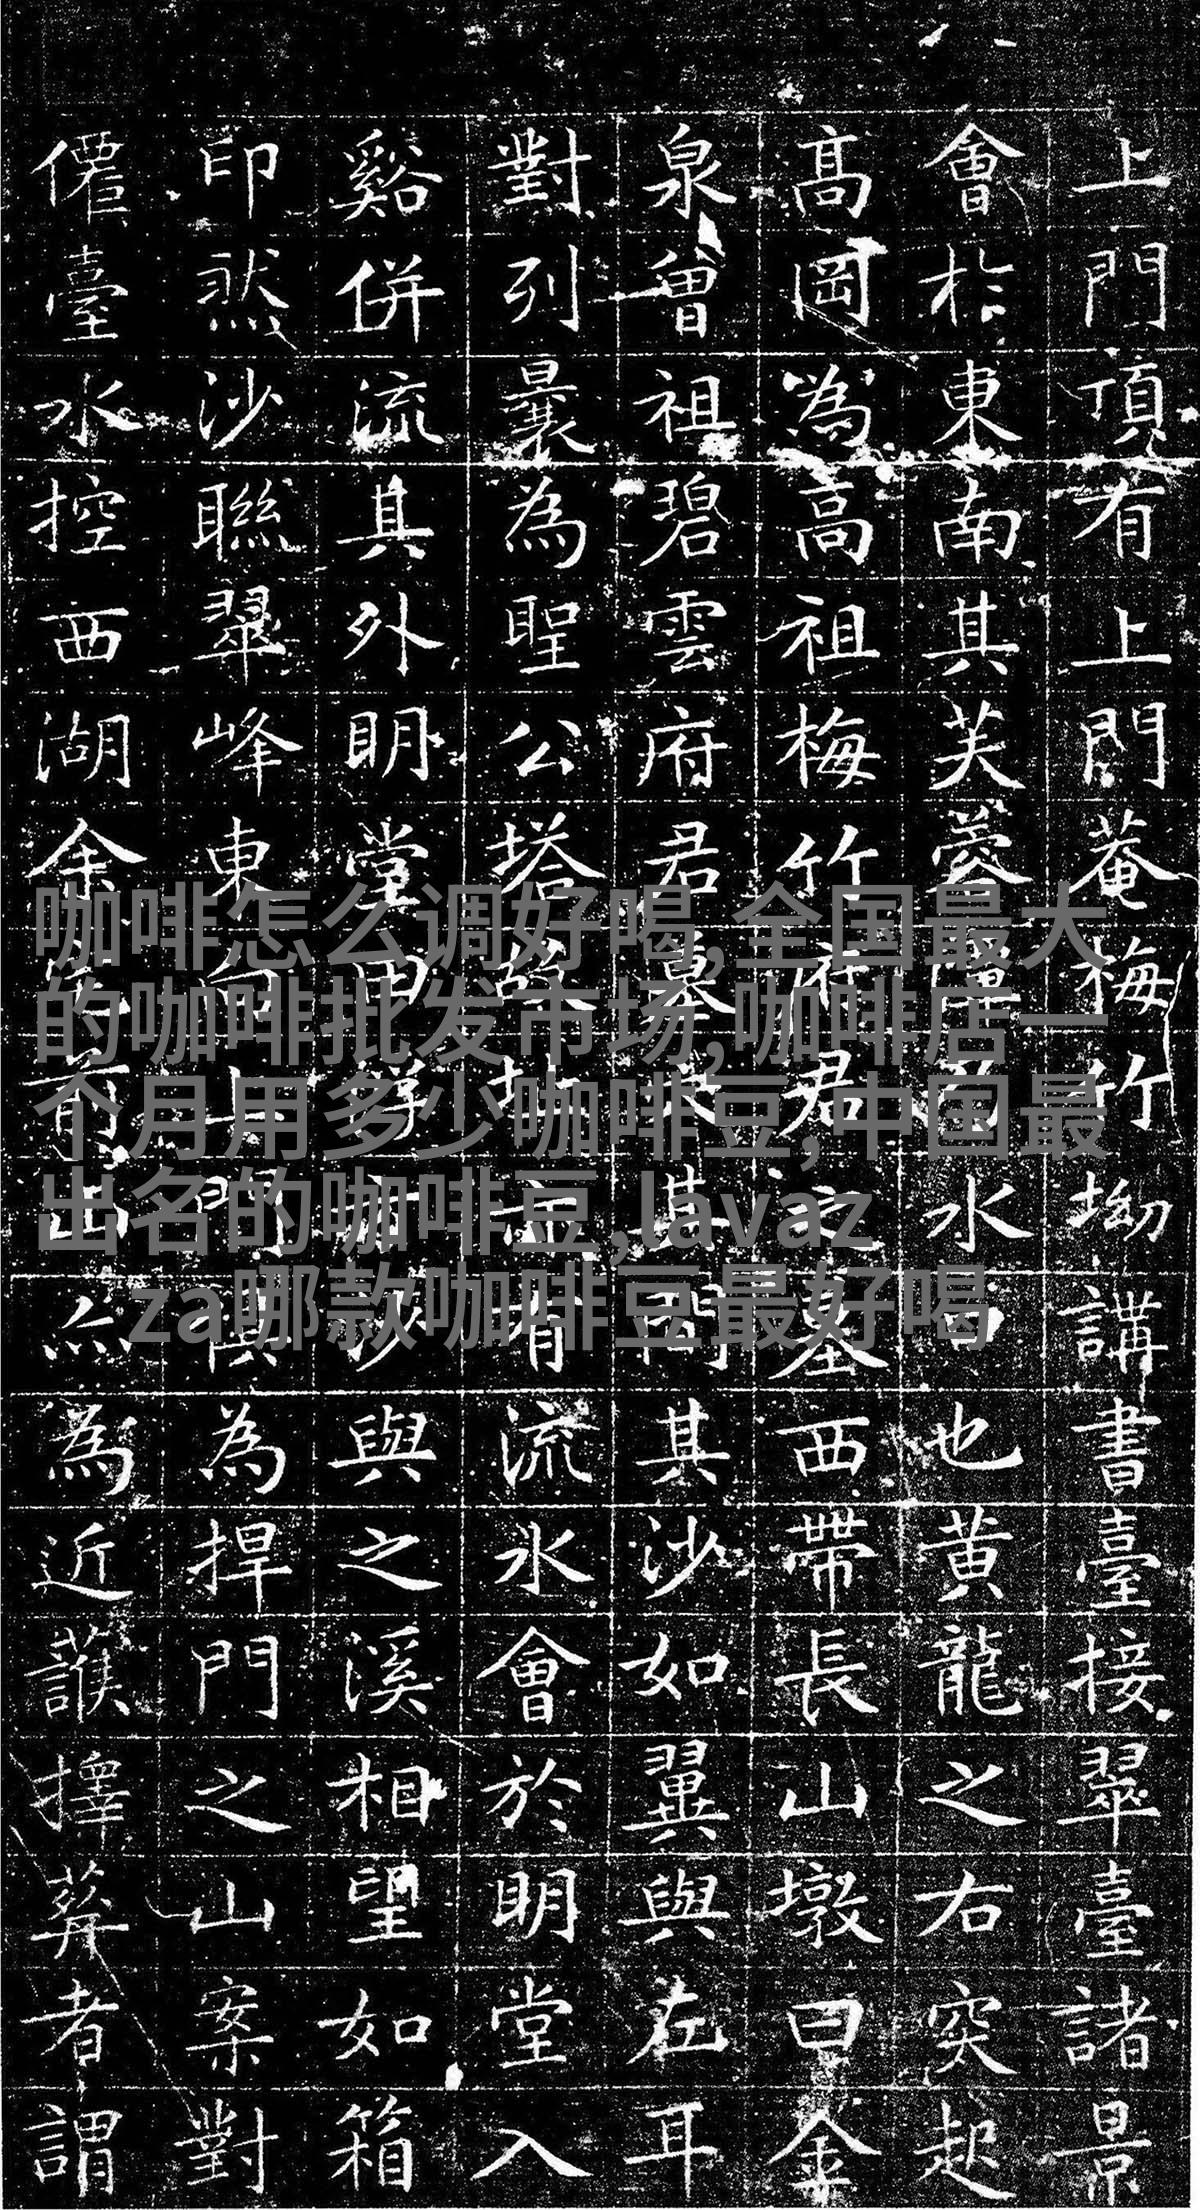 上門頂有上門菴梅竹坳講書臺接翠臺諸景
會扵東南其芙蓉水口也黃龍之右突起
高岡為高祖梅竹府君之墓西帶長山墩曰金
泉曾祖碧雲府君墓其沙如翼與左耳
對列曩為聖公塔故址有流水會於明堂入
谿併流其外明堂沙與之溪相望如箱
印然沙聯翠峰東向上門俱為捍門之山案對
僊臺水控西湖余前山為近擇葬者謂
咖啡怎么调好喝,全国最大
的咖啡批发市场,咖啡店一
个月用多少咖啡豆,中国最
出名的咖啡豆,lavaz
za哪款咖啡豆最好喝